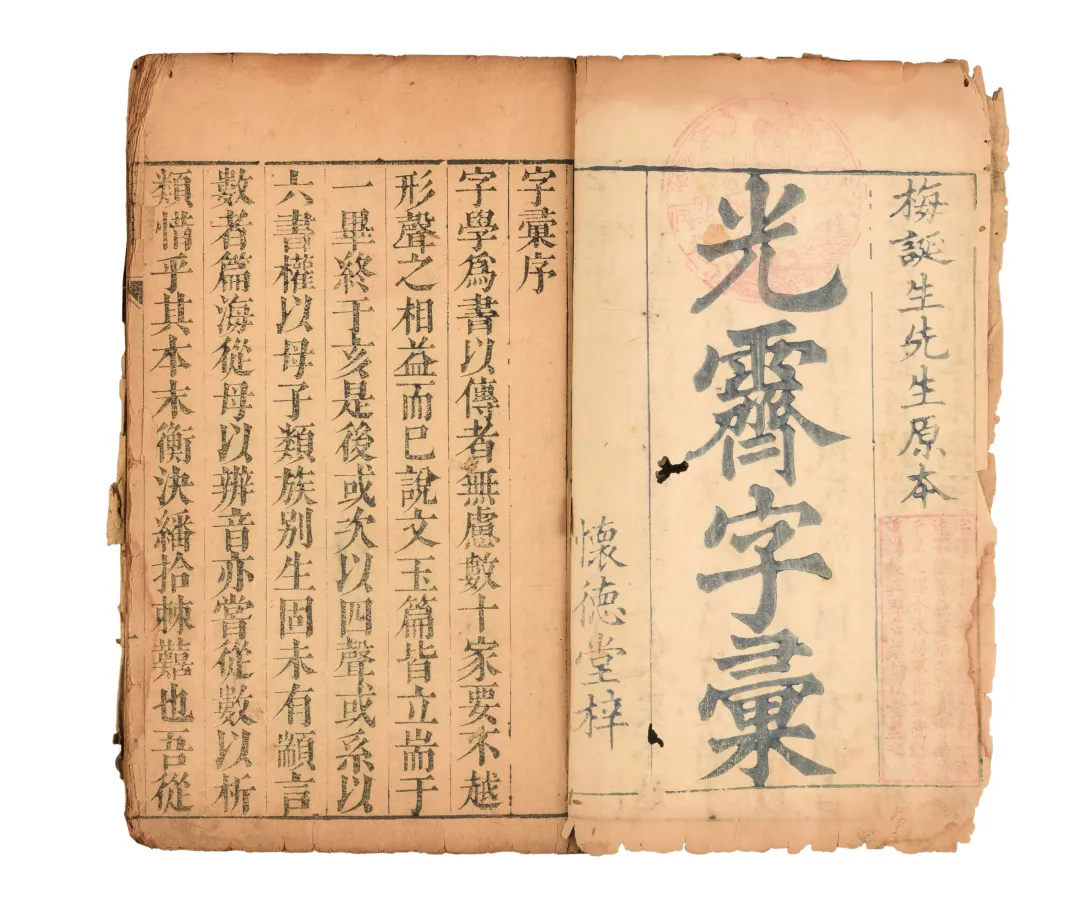 梅誕生先生原本
光霽字彙
懷德堂梓
字彙序
字學爲書以傳者無慮數十家要不越
形聲之相益而已說文玉篇皆立耑于
一畢終于亥是後或次以四聲或系以
六書權以母子類族别生固未有顓言
數者篇海從母以辨音亦當從數以析
類惜乎其本末衡決繙拾棘難也吾從